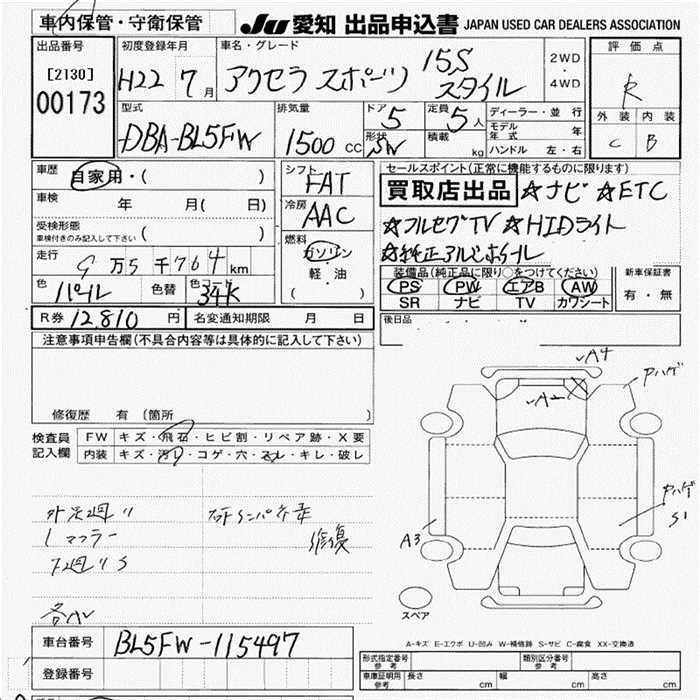 車内保管・守衛保管
JU 愛知 出品申込書 JAPAN USED CAR DEALERS ASSOCIATION
出品番号
[2130]
00173
初度登録年月
H22 7月
車名・グレード
アクセラ スポーツ 15S スタイル
2WD
・
4WD
評価点
R
外装 内装
C B
型式
DBA-BL5FW
排気量
1500 CC
ドア
5
形状
SW
定員
5人
積載
kg
ディーラー・並行
モデル年式 年
ハンドル 左・右
車歴 自家用・( )
車検 年 月( 日)
受検形態
車検付きのみ記入して下さい ( )
走行 9万5千764km
色 パール 色替 色コード 34K
シフト
FAT
冷房
AAC
燃料
ガソリン
軽・油
( )
セールスポイント(正常に機能するものに限ります)
買取店出品 ☆ナビ ☆ETC
☆フルセグTV ☆HIDライト
☆純正アルミホイール
装備品(純正品に限り○をつけてください)
PS PW エアB AW
SR ナビ TV カワシート
新車保証書
有・無
R券 12,810円 名変通知期限 月 日
後日品
注意事項申告欄(不具合内容等は具体的に記入して下さい)
修復歴 有〔箇所 〕
検査員記入欄
FW キズ・飛石・ヒビ割・リペア跡・X要
内装 キズ・汚れ・コゲ・穴・スレ・キレ・破レ
マフラー
修復
A4
A2
ヤハゲ
ヤハゲ
S1
A3
スペア
A-キズ E-エクボ U-凹み W-補修跡 S-サビ C-腐食 XX-交換済
車台番号 BL5FW-115497
登録番号
形式指定番号
参考
類別区分番号
参考
車庫証明用
参考
長さ cm 幅 cm 高さ cm